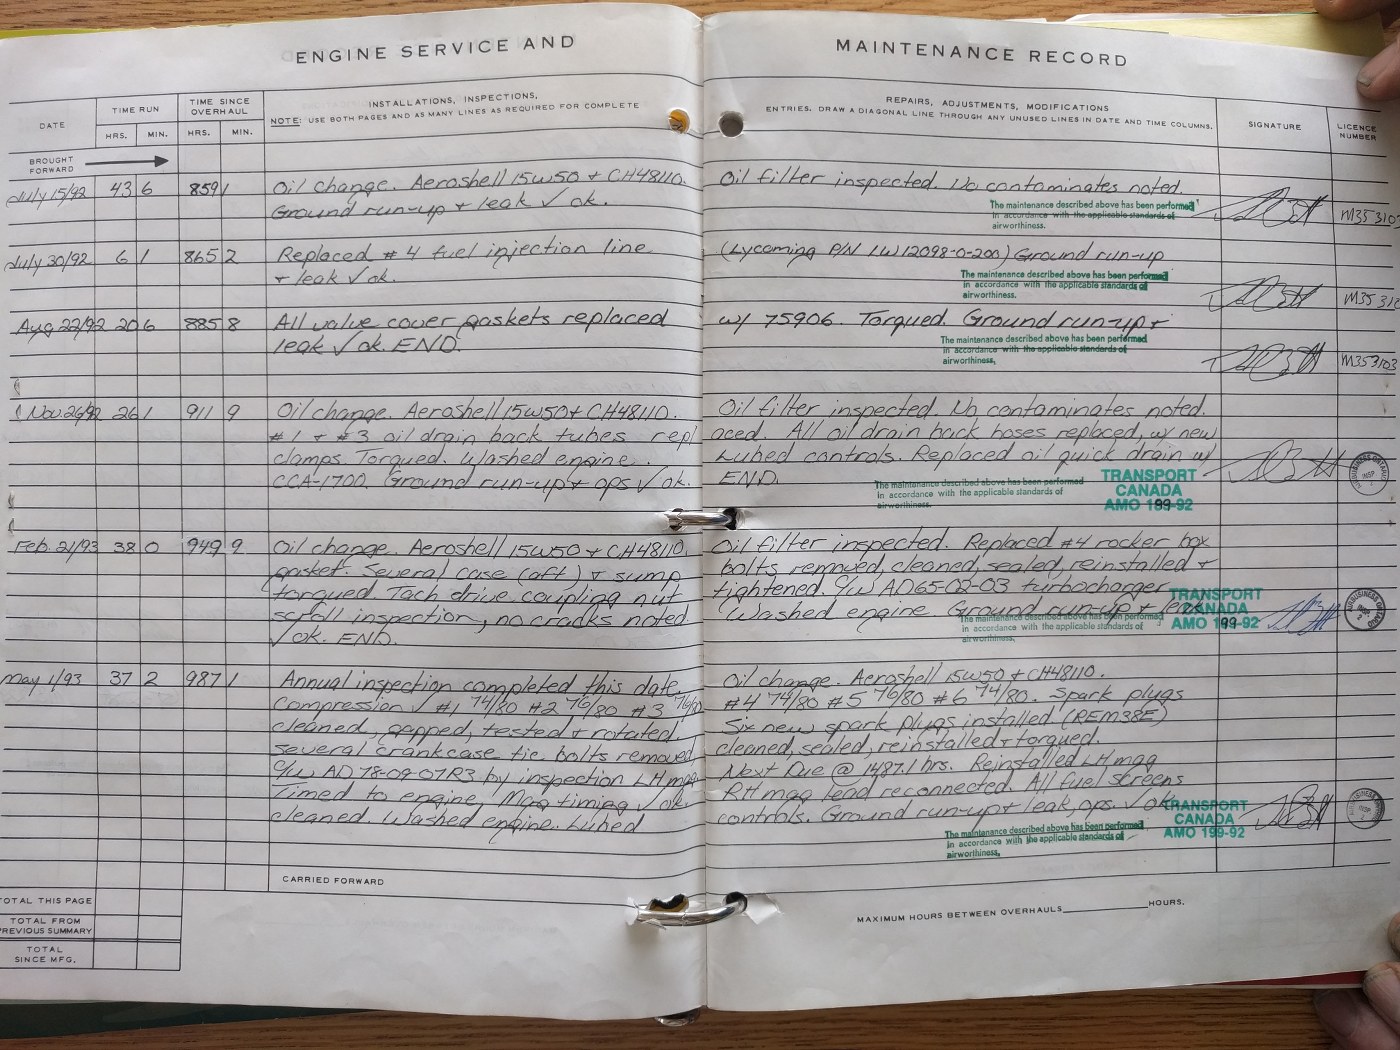 ENGINE SERVICE AND MAINTENANCE RECORD
DATE
TIME RUN
HRS. MIN.
TIME SINCE OVERHAUL
HRS. MIN.
INSTALLATIONS, INSPECTIONS, REPAIRS, ADJUSTMENTS, MODIFICATIONS
NOTE: USE BOTH PAGES AND AS MANY LINES AS REQUIRED FOR COMPLETE ENTRIES. DRAW A DIAGONAL LINE THROUGH ANY UNUSED LINES IN DATE AND TIME COLUMNS.
SIGNATURE
LICENCE NUMBER
BROUGHT FORWARD
July 15/92 43 6 859 1 Oil change. Aeroshell 15w50 + CH48110. Oil filter inspected. No contaminates noted.
Ground run-up + leak √ ok.
The maintenance described above has been performed
in accordance with the applicable standards of
airworthiness.
M353103
July 30/92 6 1 865 2 Replaced #4 fuel injection line (Lycoming P/N LW12098-0-200) Ground run-up
+ leak √ ok.
The maintenance described above has been performed
in accordance with the applicable standards of
airworthiness.
M35310
Aug 22/92 20 6 885 8 All valve cover gaskets replaced w/ 75906. Torqued. Ground run-up +
leak √ ok. END.
The maintenance described above has been performed
in accordance with the applicable standards of
airworthiness.
M353103
Nov. 26/92 26 1 911 9 Oil change. Aeroshell 15w50 + CH48110. Oil filter inspected. No contaminates noted.
#1 + #3 oil drain back tubes repl aced. All oil drain back hoses replaced, w/ new
clamps. Torqued. Washed engine. Lubed controls. Replaced oil quick drain w/
CCA-1700. Ground run-up + ops √ ok. END.
The maintenance described above has been performed
in accordance with the applicable standards of
airworthiness.
TRANSPORT
CANADA
AMO 199-92
Feb. 21/93 38 0 949 9 Oil change. Aeroshell 15w50 + CH48110. Oil filter inspected. Replaced #4 rocker box
gasket. Several case (aft) + sump bolts removed, cleaned, sealed, reinstalled +
torqued. Tach drive coupling nut tightened. C/W AD65-02-03 turbocharger
scroll inspection, no cracks noted. Washed engine Ground run-up + leak
√ ok. END.
The maintenance described above has been performed
in accordance with the applicable standards of
airworthiness.
TRANSPORT
CANADA
AMO 199-92
May 1/93 37 2 987 1 Annual inspection completed this date. Oil change. Aeroshell 15w50 + CH48110.
Compression √ #1 74/80 #2 76/80 #3 76/80 #4 74/80 #5 76/80 #6 74/80. Spark plugs
cleaned, gapped, tested + rotated. Six new spark plugs installed (REM38E)
Several crankcase tie bolts removed, cleaned, sealed, reinstalled + torqued.
C/W AD78-09-07R3 by inspection LH mag Next Due @ 1487.1 hrs. Reinstalled LH mag
Timed to engine, Mag timing √ ok. RH mag lead reconnected. All fuel screens
cleaned. Washed engine. Lubed controls. Ground run-up + leak, ops. √ ok
The maintenance described above has been performed
in accordance with the applicable standards of
airworthiness.
TRANSPORT
CANADA
AMO 199-92
CARRIED FORWARD
TOTAL THIS PAGE
TOTAL FROM PREVIOUS SUMMARY
TOTAL SINCE MFG.
MAXIMUM HOURS BETWEEN OVERHAULS HOURS.